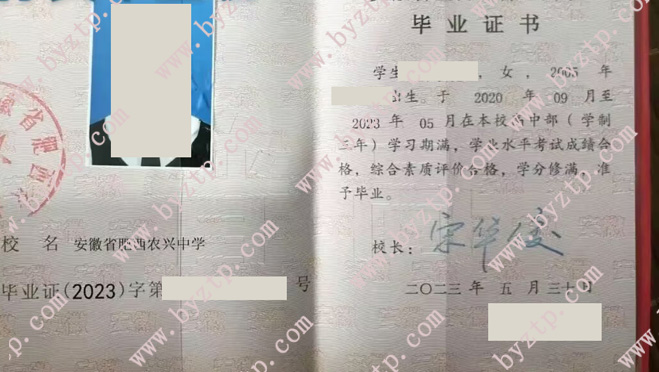 安徽省肥西
校 名 安徽省肥西农兴中学
毕业证(2023)字第 号
毕业证书
学生 , 女 , 2005 年
出生 于 2020 年 09 月至
2023 年 05 月在本校高中部 ( 学制
三年) 学习期满, 学业水平考试成绩合
格, 综合素质评价合格, 学分修满, 准
予毕业。
校长: 宋华俊
二〇二三 年 五 月 三十日
www.byztp.com